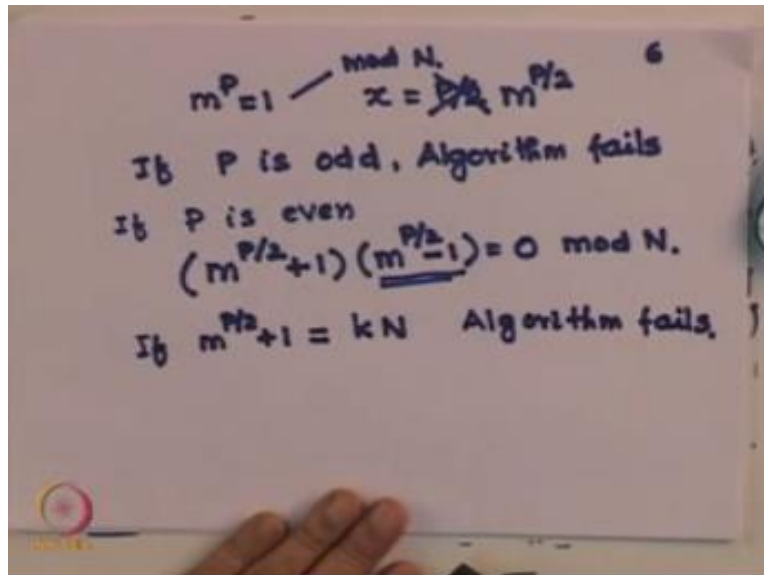 6
mod N.
m^P = 1 x = m^P/2
If P is odd, Algorithm fails
If P is even
(m^P/2 + 1) (m^P/2 - 1) = 0 mod N.
If m^P/2 + 1 = kN Algorithm fails.